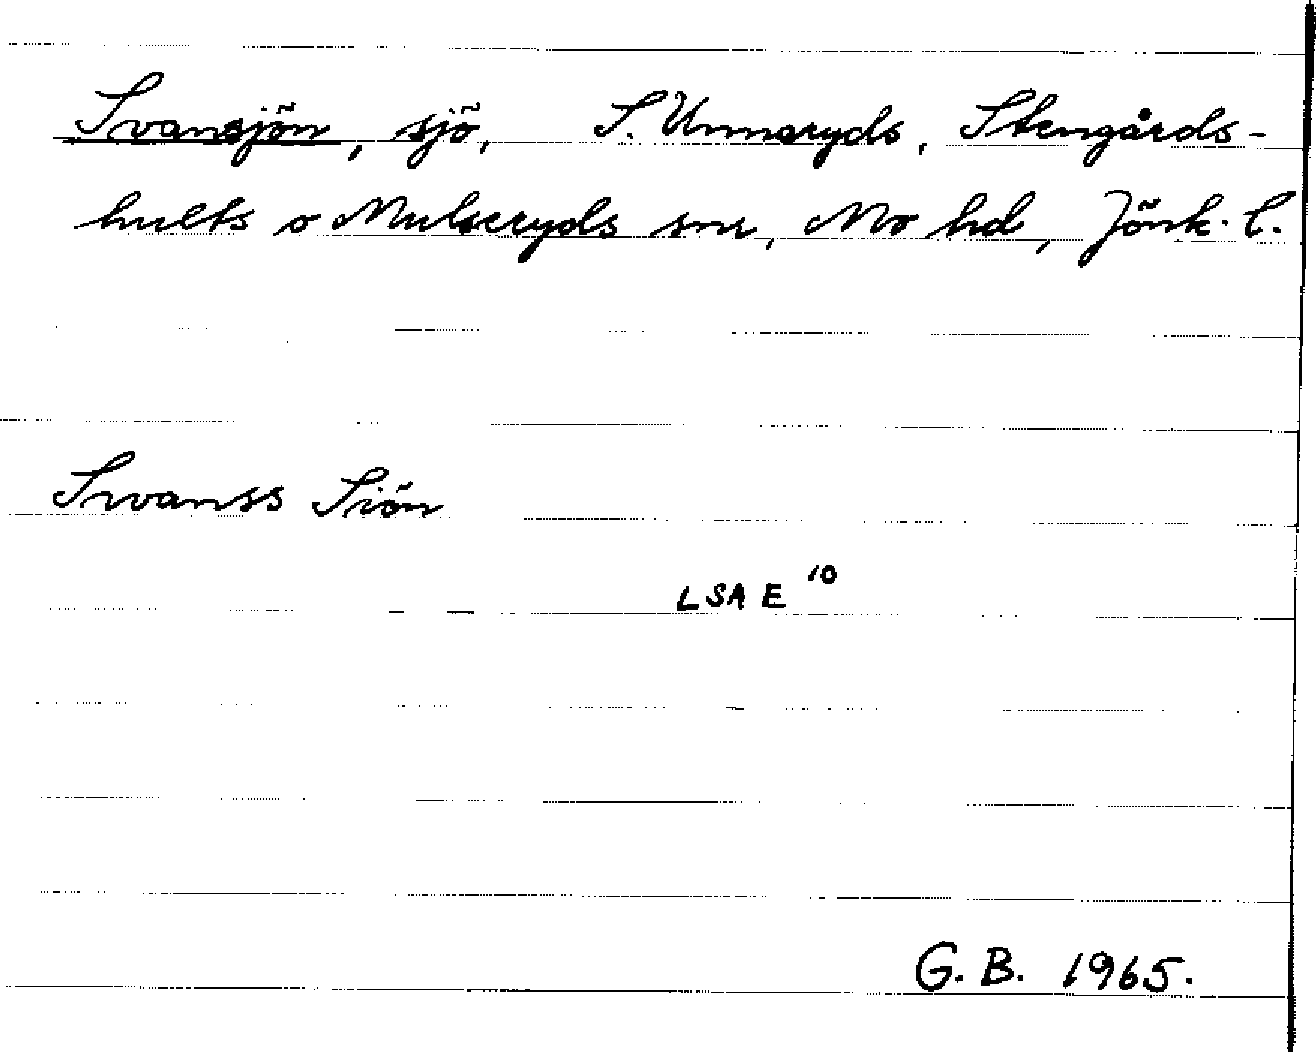 Svansjön, sjö, S. Unnaryds, Stengårds-
hults o Mulseryds snr, Mo hd, Jönk. l.
Swanss Siön
LSA E 10
G. B. 1965.